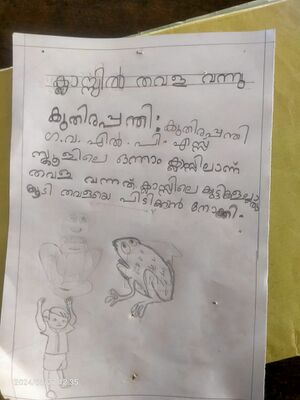 ക്ലാസ്സിൽ തവള വന്നു
കുതിരപ്പന്തി: കുതിരപ്പന്തി
ഗ.വ. എൽ. പി. എസ്സ്
സ്കൂളിലെ ഒന്നാം ക്ലാസിലാണ്
തവള വന്നത്. ക്ലാസിലെ കുട്ടികളെല്ലാം
കൂടി തവളയെ പിടിക്കാൻ നോക്കി.